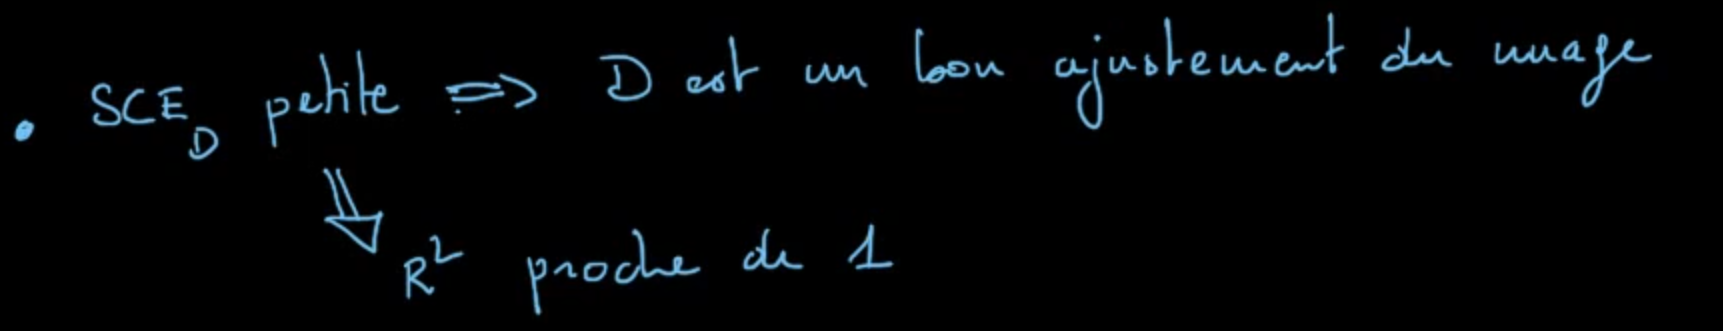 • SCE_D petite => D est un bon ajustement du nuage
⇓
R² proche de 1